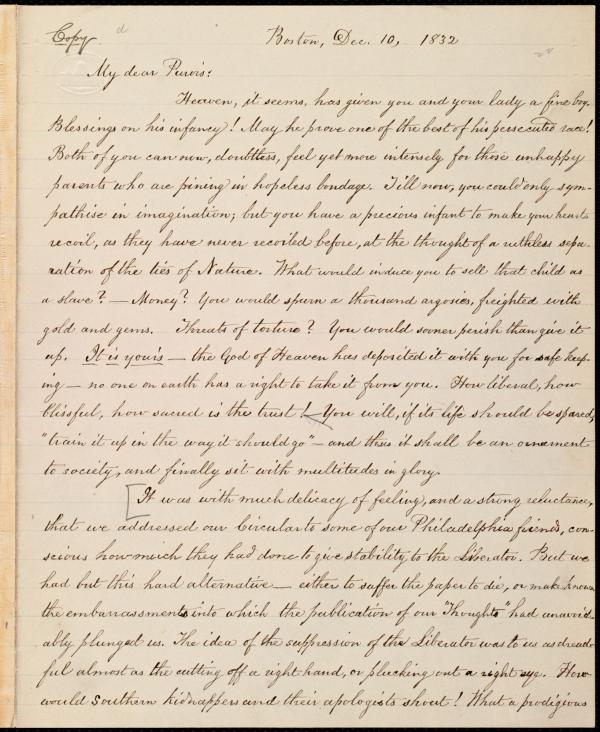 Copy.
Boston, Dec. 10, 1832
My dear Purvis:
Heaven, it seems, has given you and your lady a fine boy.
Blessings on his infancy! May he prove one of the best of his persecuted race!
Both of you can now, doubtless, feel yet more intensely for those unhappy
parents who are pining in hopeless bondage. Till now, you could only sym-
pathise in imagination; but you have a precious infant to make your hearts
recoil, as they have never recoiled before, at the thought of a ruthless sepa-
ration of the ties of Nature. What would induce you to sell that child as
a slave? — Money? You would spurn a thousand argosies, freighted with
gold and gems. Threats of torture? You would sooner perish than give it
up. It is yours — the God of Heaven has deposited it with you for safe keep-
ing — no one on earth has a right to take it from you. How liberal, how
blissful, how sacred is the trust! You will, if its life should be spared,
"train it up in the way it should go" — and then it shall be an ornament
to society, and finally sit with multitudes in glory.
[It was with much delicacy of feeling, and a strong reluctance,
that we addressed our Circular to some of our Philadelphia friends, con-
scious how much they had done to give stability to the Liberator. But we
had but this hard alternative — either to suffer the paper to die, or make known
the embarrassments into which the publication of our "Thoughts" had unavoid-
ably plunged us. The idea of the suppression of the Liberator was to us as dread-
ful almost as the cutting off a right hand, or plucking out a right eye. How
would Southern kidnappers and their apologists shout! What a prodigious